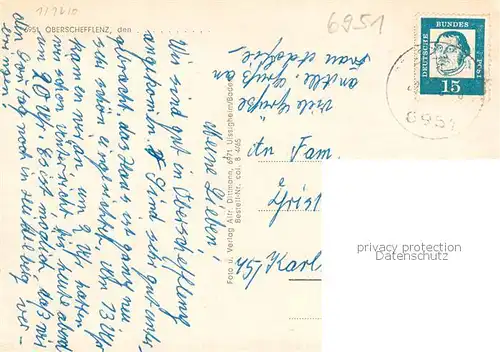 6951 OBERSCHEFFLENZ, den
Meine Lieben!
Wir sind gut in Oberschefflenz
angekommen. Sind sehr gut unter-
gebracht, das Haus ist ganz neu
sehr schön eingerichtet. Um 13 Uhr
kamen wir an, um 2 Uhr hatten
wir schon Unterricht bis heute abend
um 20 Uhr. Es ist möglich, daß wir
den Sonntag noch in
viele Grüße
Gruß an
Frau
Foto u. Verlag Alfr. Dittmann, 6971 Uissigheim/Baden
Bestell-Nr. col. B 4465
6951
DEUTSCHE BUNDES POST
15
6951
An Fam.
75 Karls
privacy protection
by AnsichtskartenCenter